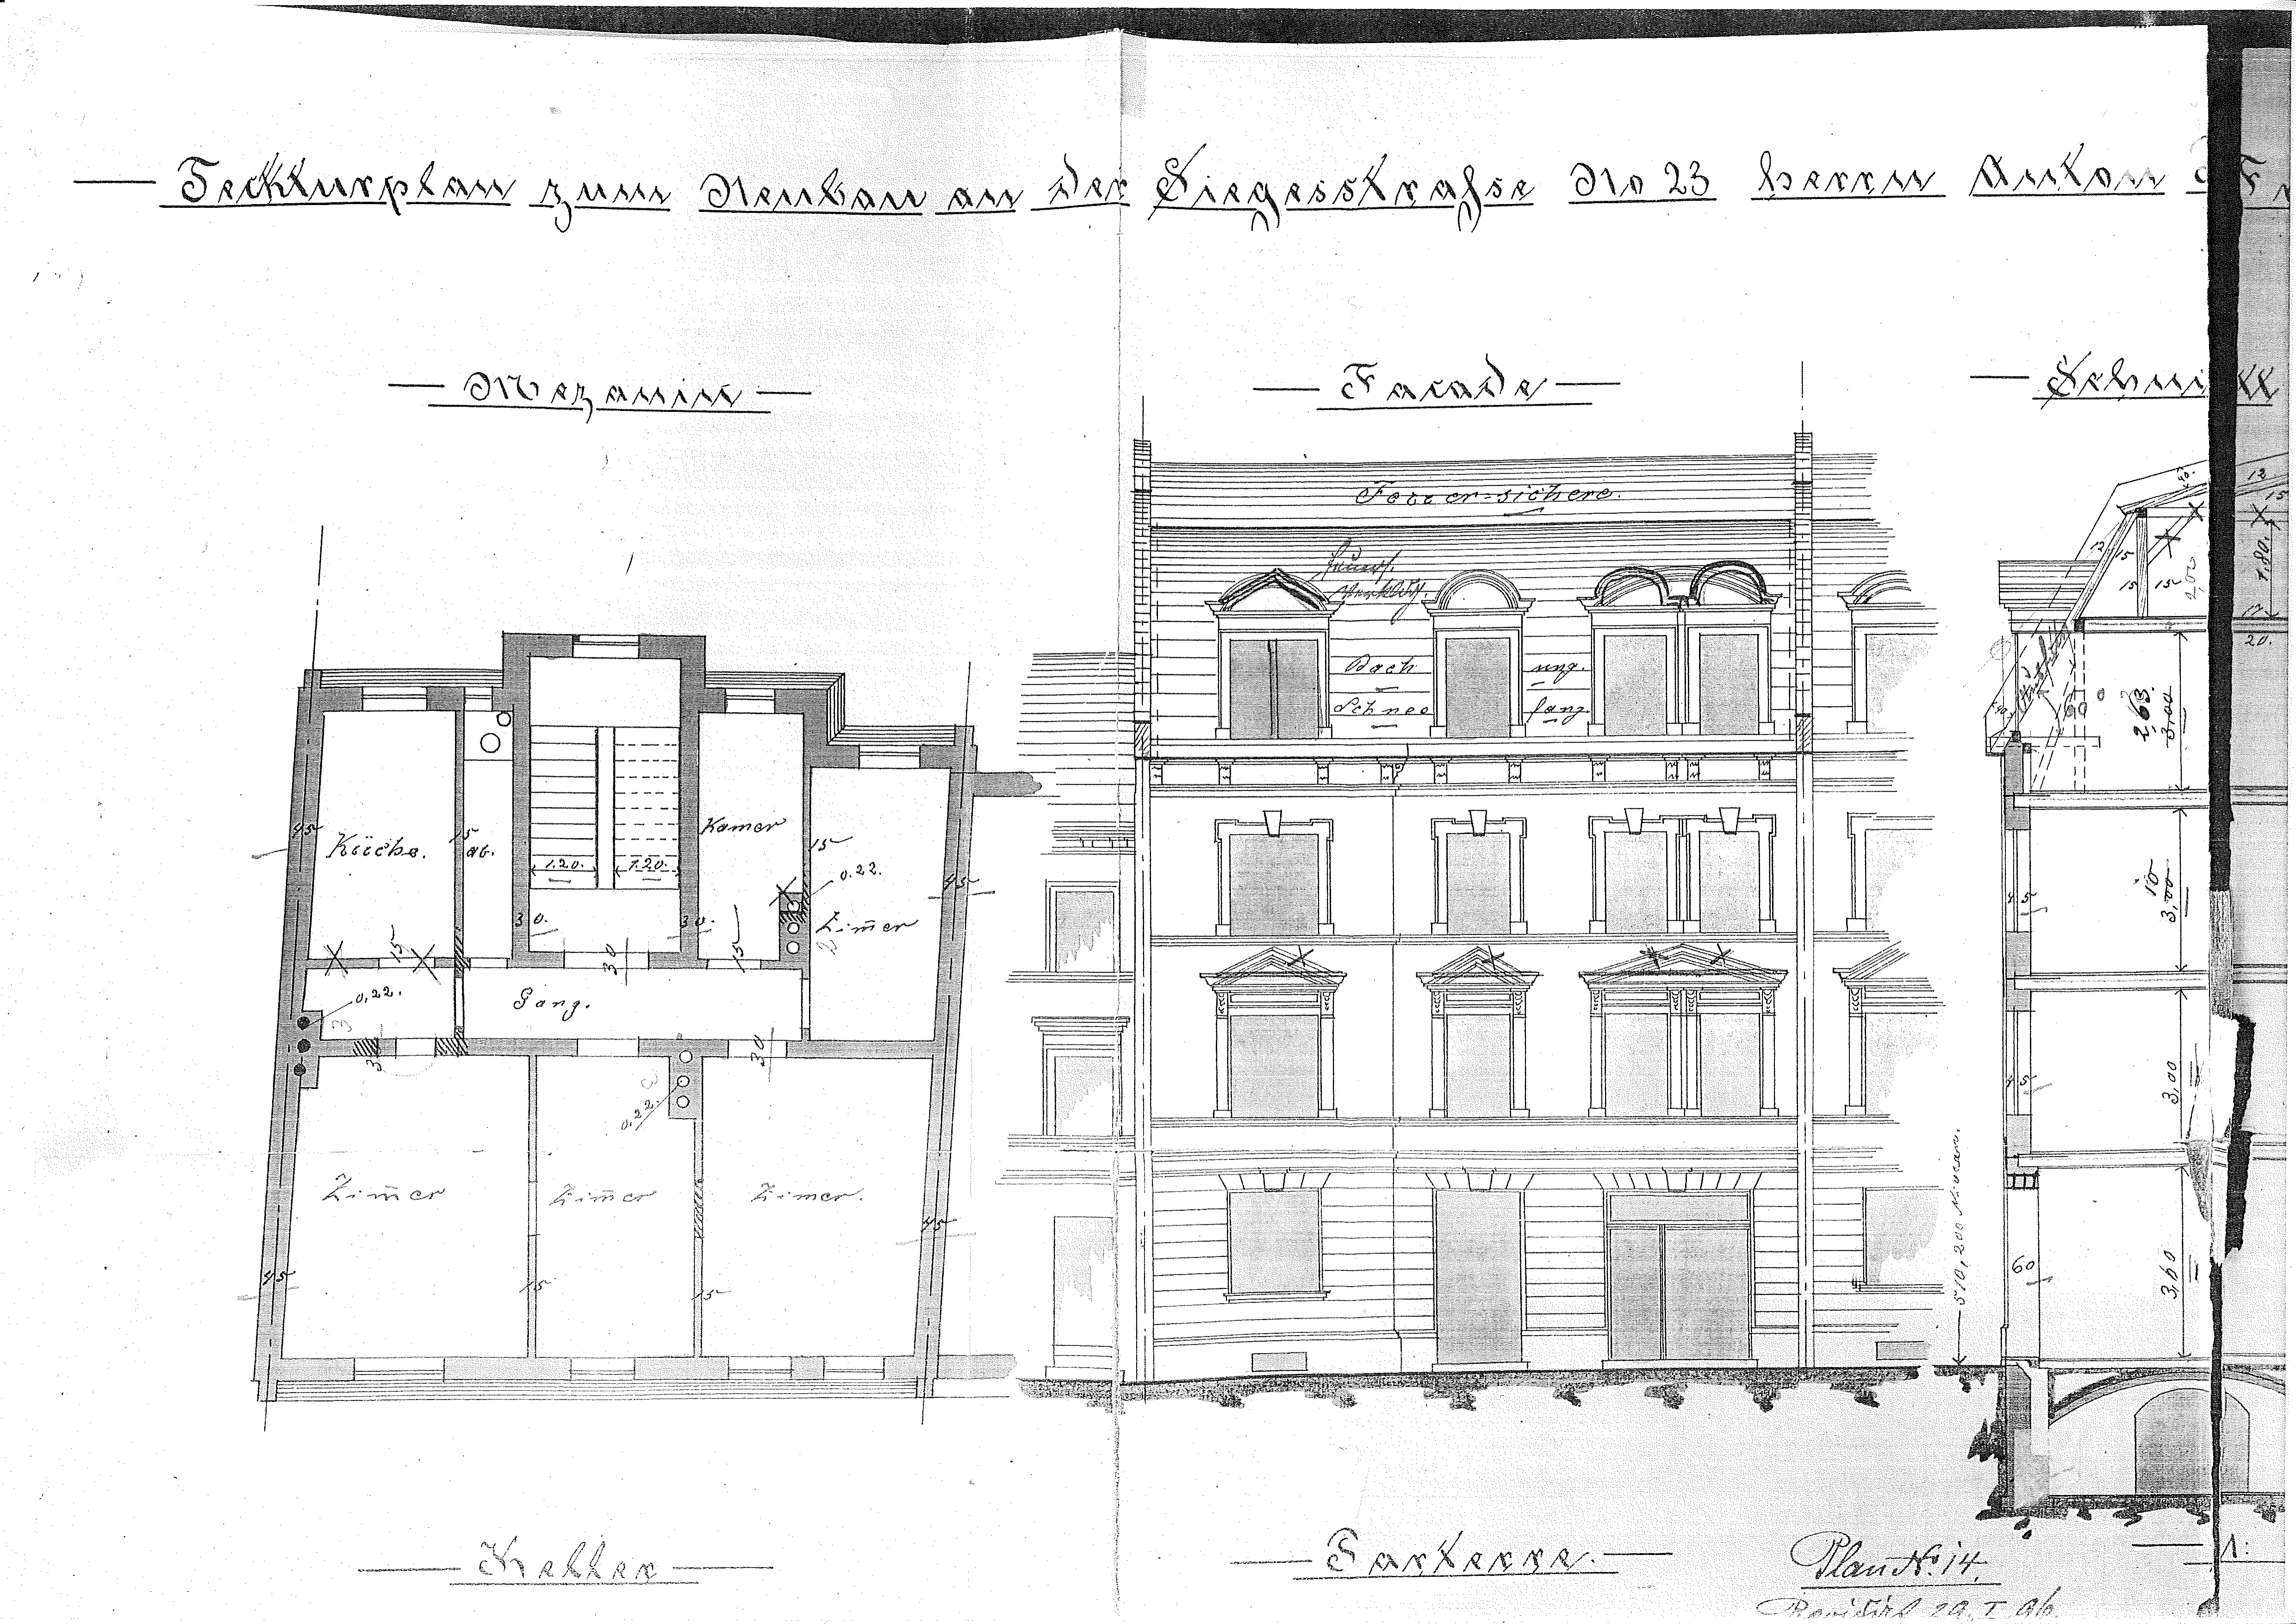 Tecturplan zum Neubau an der Siegesstraße No 23 Herrn Anton
Mezanin
Facade
Schnitt
Feuer=sichere.
Dach ung.
Schnee fang.
Küche.
ab.
Kamer
Zim̄er
Gang.
Zim̄er
Zim̄er
Zimer.
45
15
1.20.
1.20.
15
0.22.
45
30.
30.
15
30
15
0,22.
30
0.22.
45
15
15
45
12
15
12
15
15
15
2,00
1.80.
17
20.
2,63.
3,00
10
3,00
45
3,00
45
3,60
60
510,200
Keller
Parterre.
Plan No. 14.
Revidirt 29. I. 96.
1: